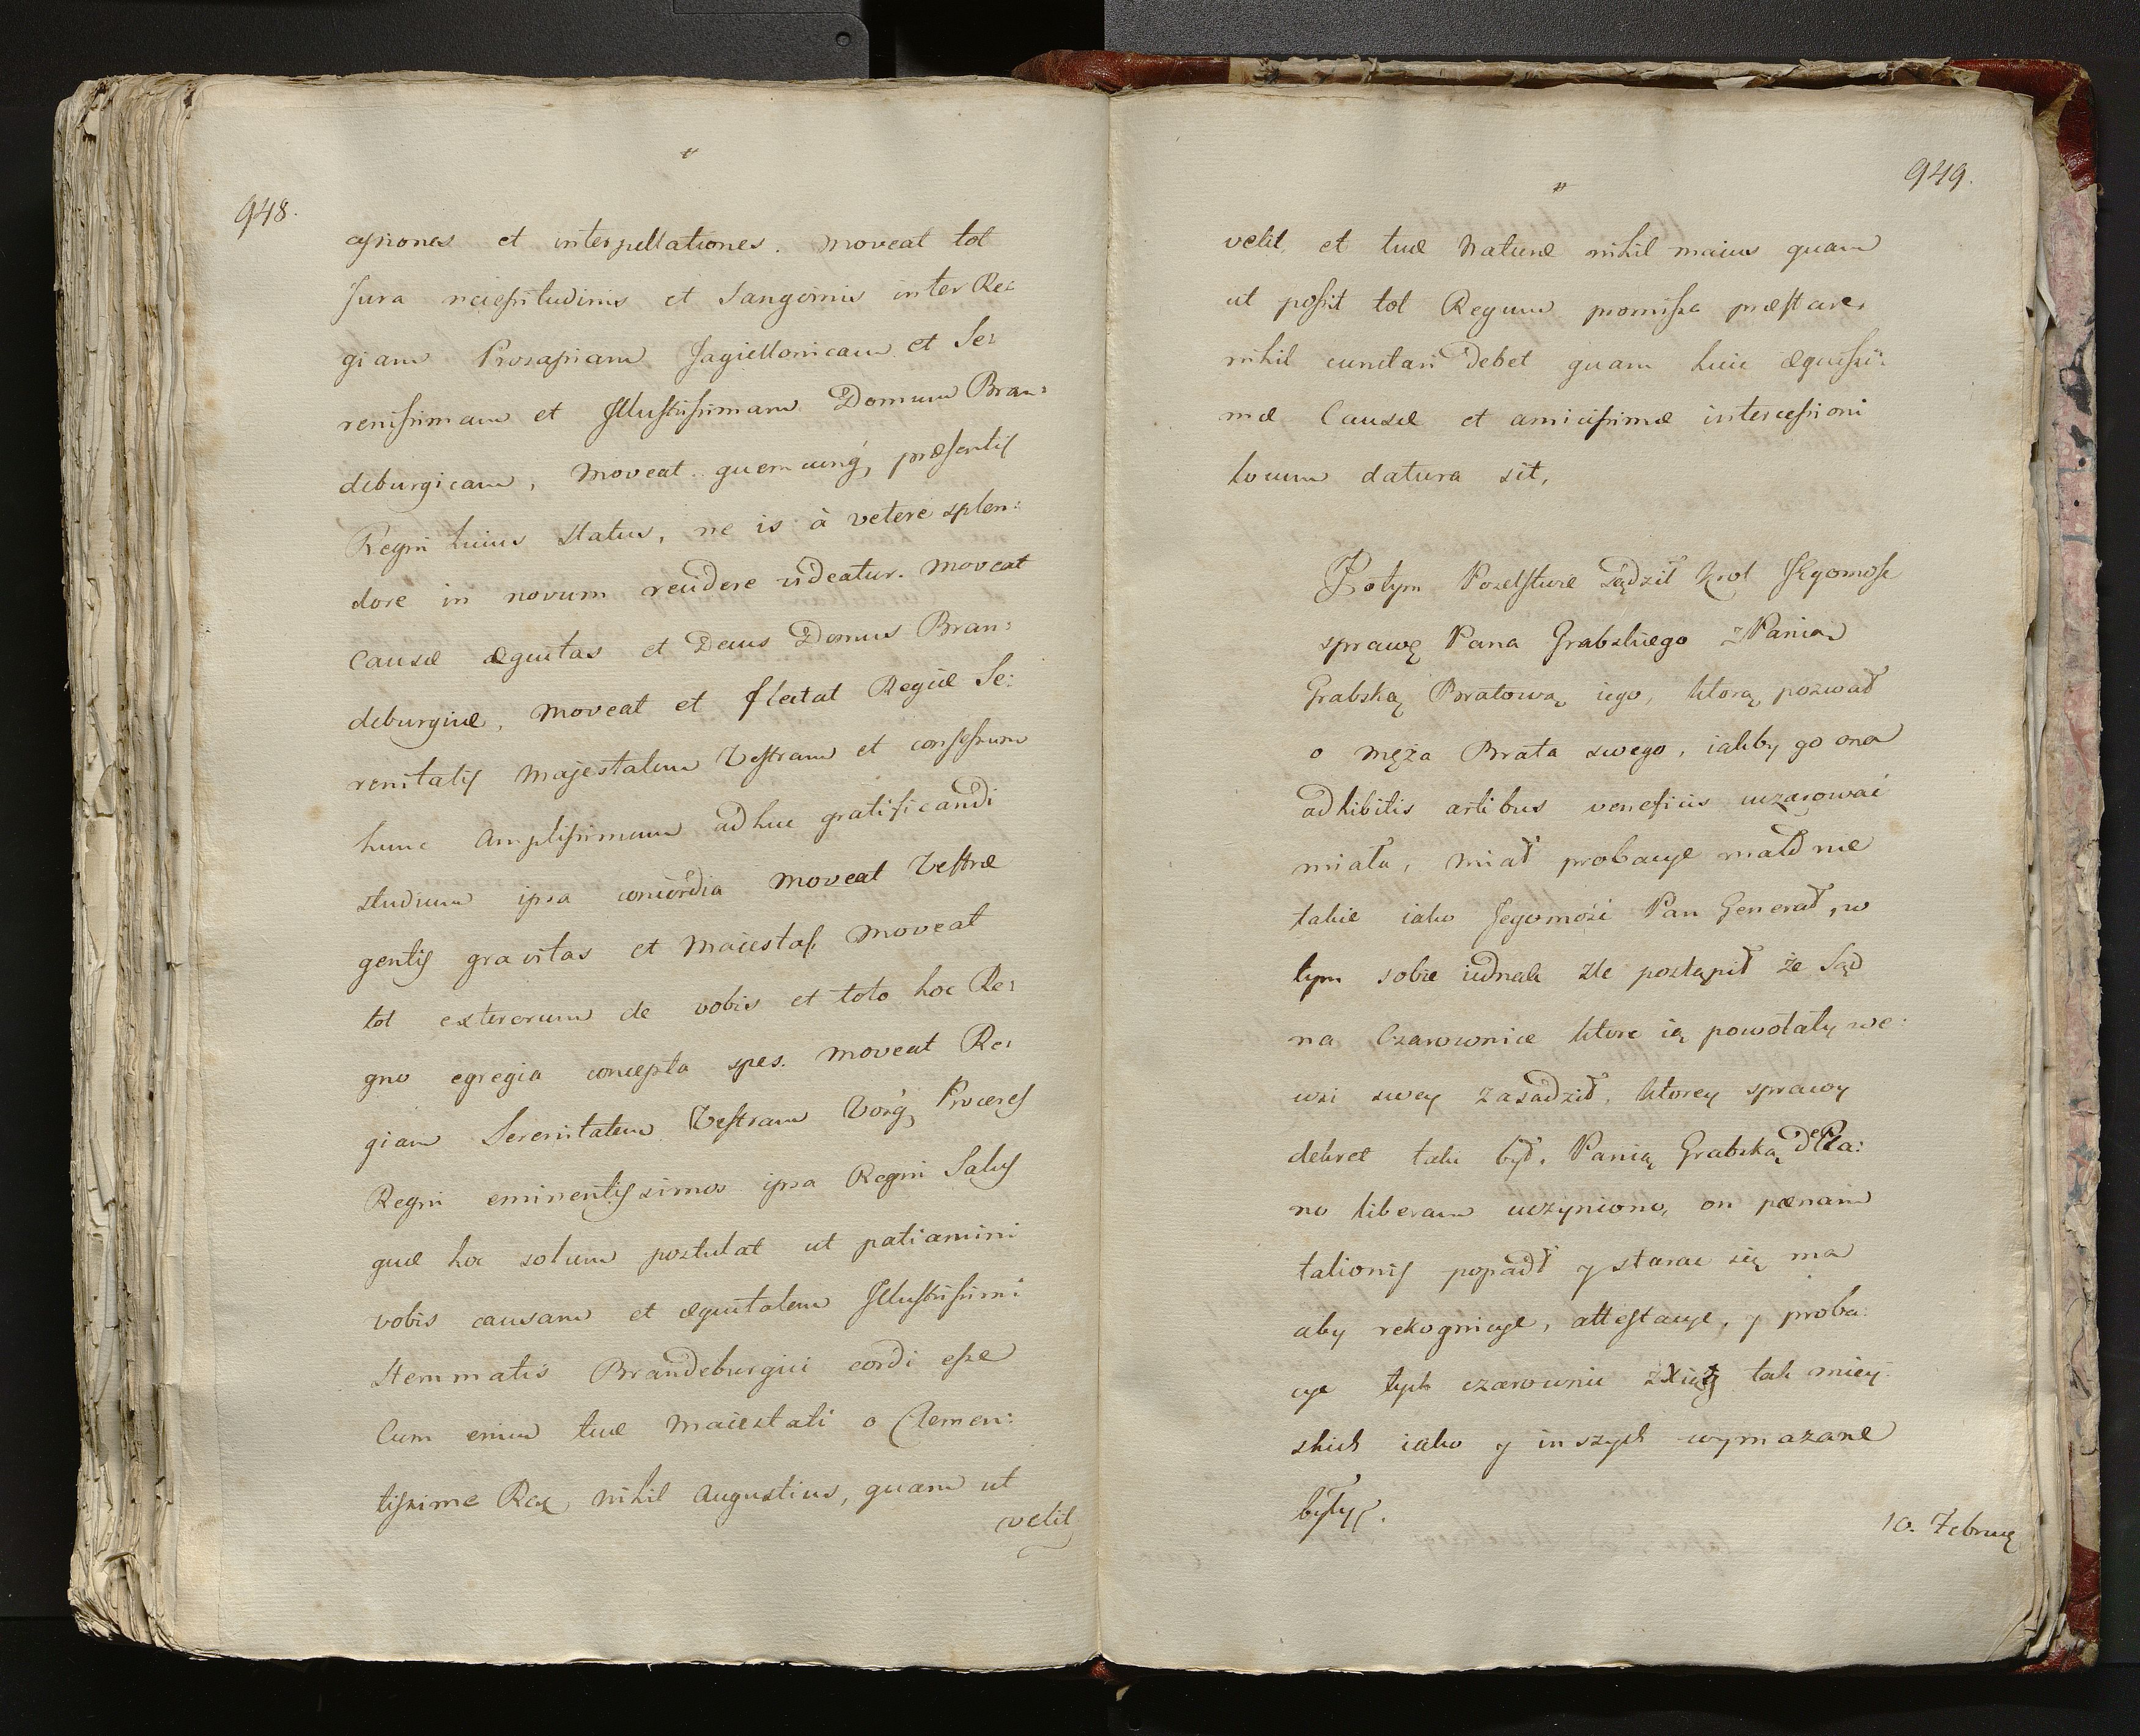 948.
cessiones et interpellationes. moveat tot
Jura necessitudinis et Sangvinis inter Re=
giam Prosapiam Jagiellonicam et Se=
renissimam et Illustrissimam Domum Bran=
deburgicam, moveat quemcunq, præsentis
Regni huius status, ne is à vetere splen=
dore in novum recidere videatur. moveat
Causæ æquitas et Decus Domus Bran=
deburgicæ, moveat et flectat Regiæ Se=
renitatis Majestatem Vestram et consessum
hunc Amplissimum adhuc gratificandi
studium ipsa concordia moveat Vestræ
gentis gravitas et Maiestas, moveat
tot exterorum de vobis et toto hoc Re=
gno egregia concepta spes. moveat Re=
giam Serenitatem Vestram Vosq, Proceres
Regni eminentissimos ipsa Regni Salus
quæ hoc solum postulat ut patiamini
vobis causam et æquitatem Illustrissimi
Stemmatis Brandeburgici cordi esse
Cum enim tuæ Maiestati o Clemen=
tissime Rex, nihil Augustius, quam ut
velit
949.
velit, et tuæ Naturæ nihil maius quam
ut possit tot Regum promissa præstare,
nihil cunctari debet quam huic æquissi=
mæ Causæ et amicissimæ intercessioni
locum datura sit,
Potym Poselstwie sądził Krol Jegomość
sprawę Pana Grabskiego z Panią
Grabską Bratową iego, ktorą pozwał
o męża Brata swego, iakby go ona
adhibitis artibus veneficiis uczarować
miała, miał probacye małо nie
takie iako Jegomość Pan Generał, w
tym sobie iednak źle postąpił że Sąd
na Czarownice ktore ią powołały we
wsi swey zasadził, ktorey sprawy
dekret taki był. Panią Grabską dekla=
no liberam uczyniono, on pænam
talionis popadł y starac się ma
aby rekognicye, attestacye, y proba=
cye tych czarownic z Xiąg tak miey=
skich iako y inszych wymazane
były.
10. Februa